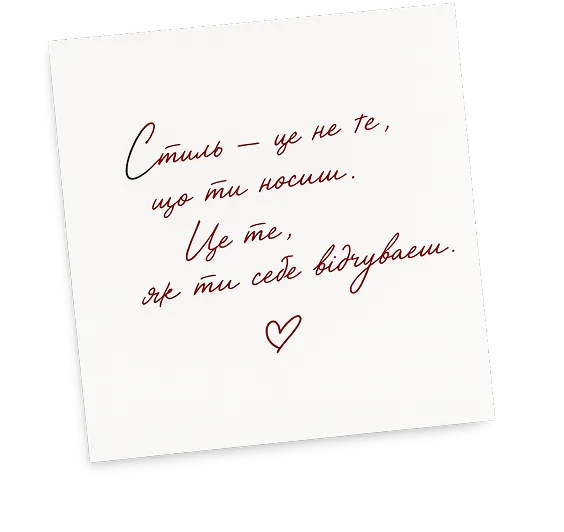 Стиль — це не те,
що ти носиш.
Це те,
як ти себе відчуваєш.